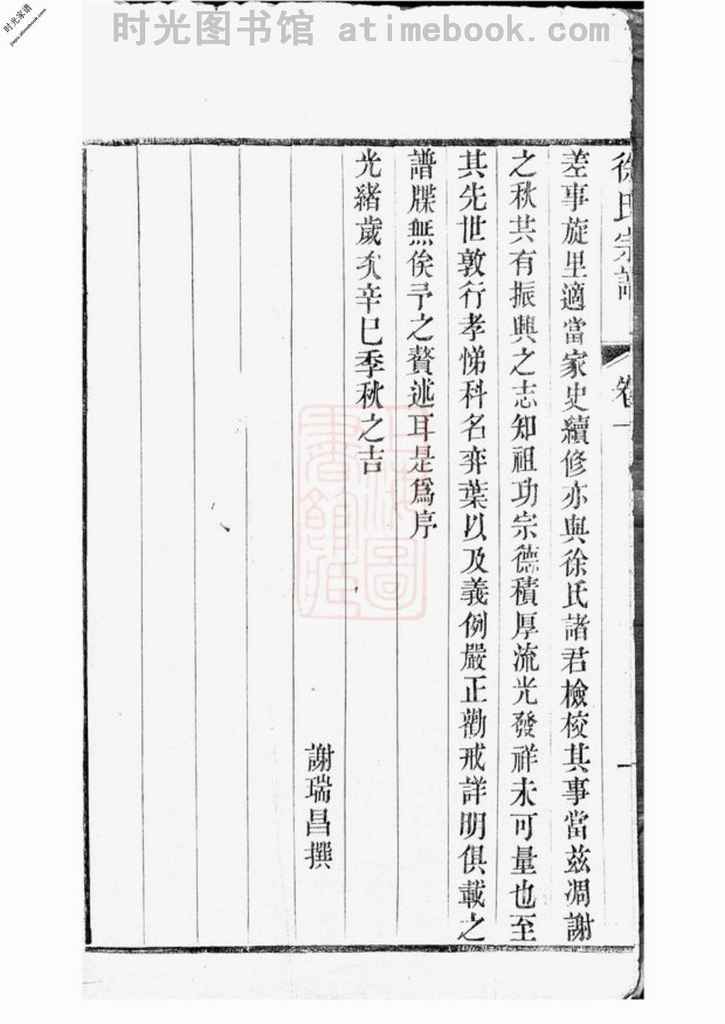 时光图书馆 atimebook.com
时光家谱
徐氏宗譜 卷一 一
差事旋里適當家史續修亦與徐氏諸君檢校其事當茲凋謝
之秋共有振興之志知祖功宗德積厚流光發祥未可量也至
其先世敦行孝悌科名弈葉以及義例嚴正勸戒詳明俱載之
譜牒無俟予之贅述耳是爲序
光緒歲次辛巳季秋之吉
謝瑞昌撰